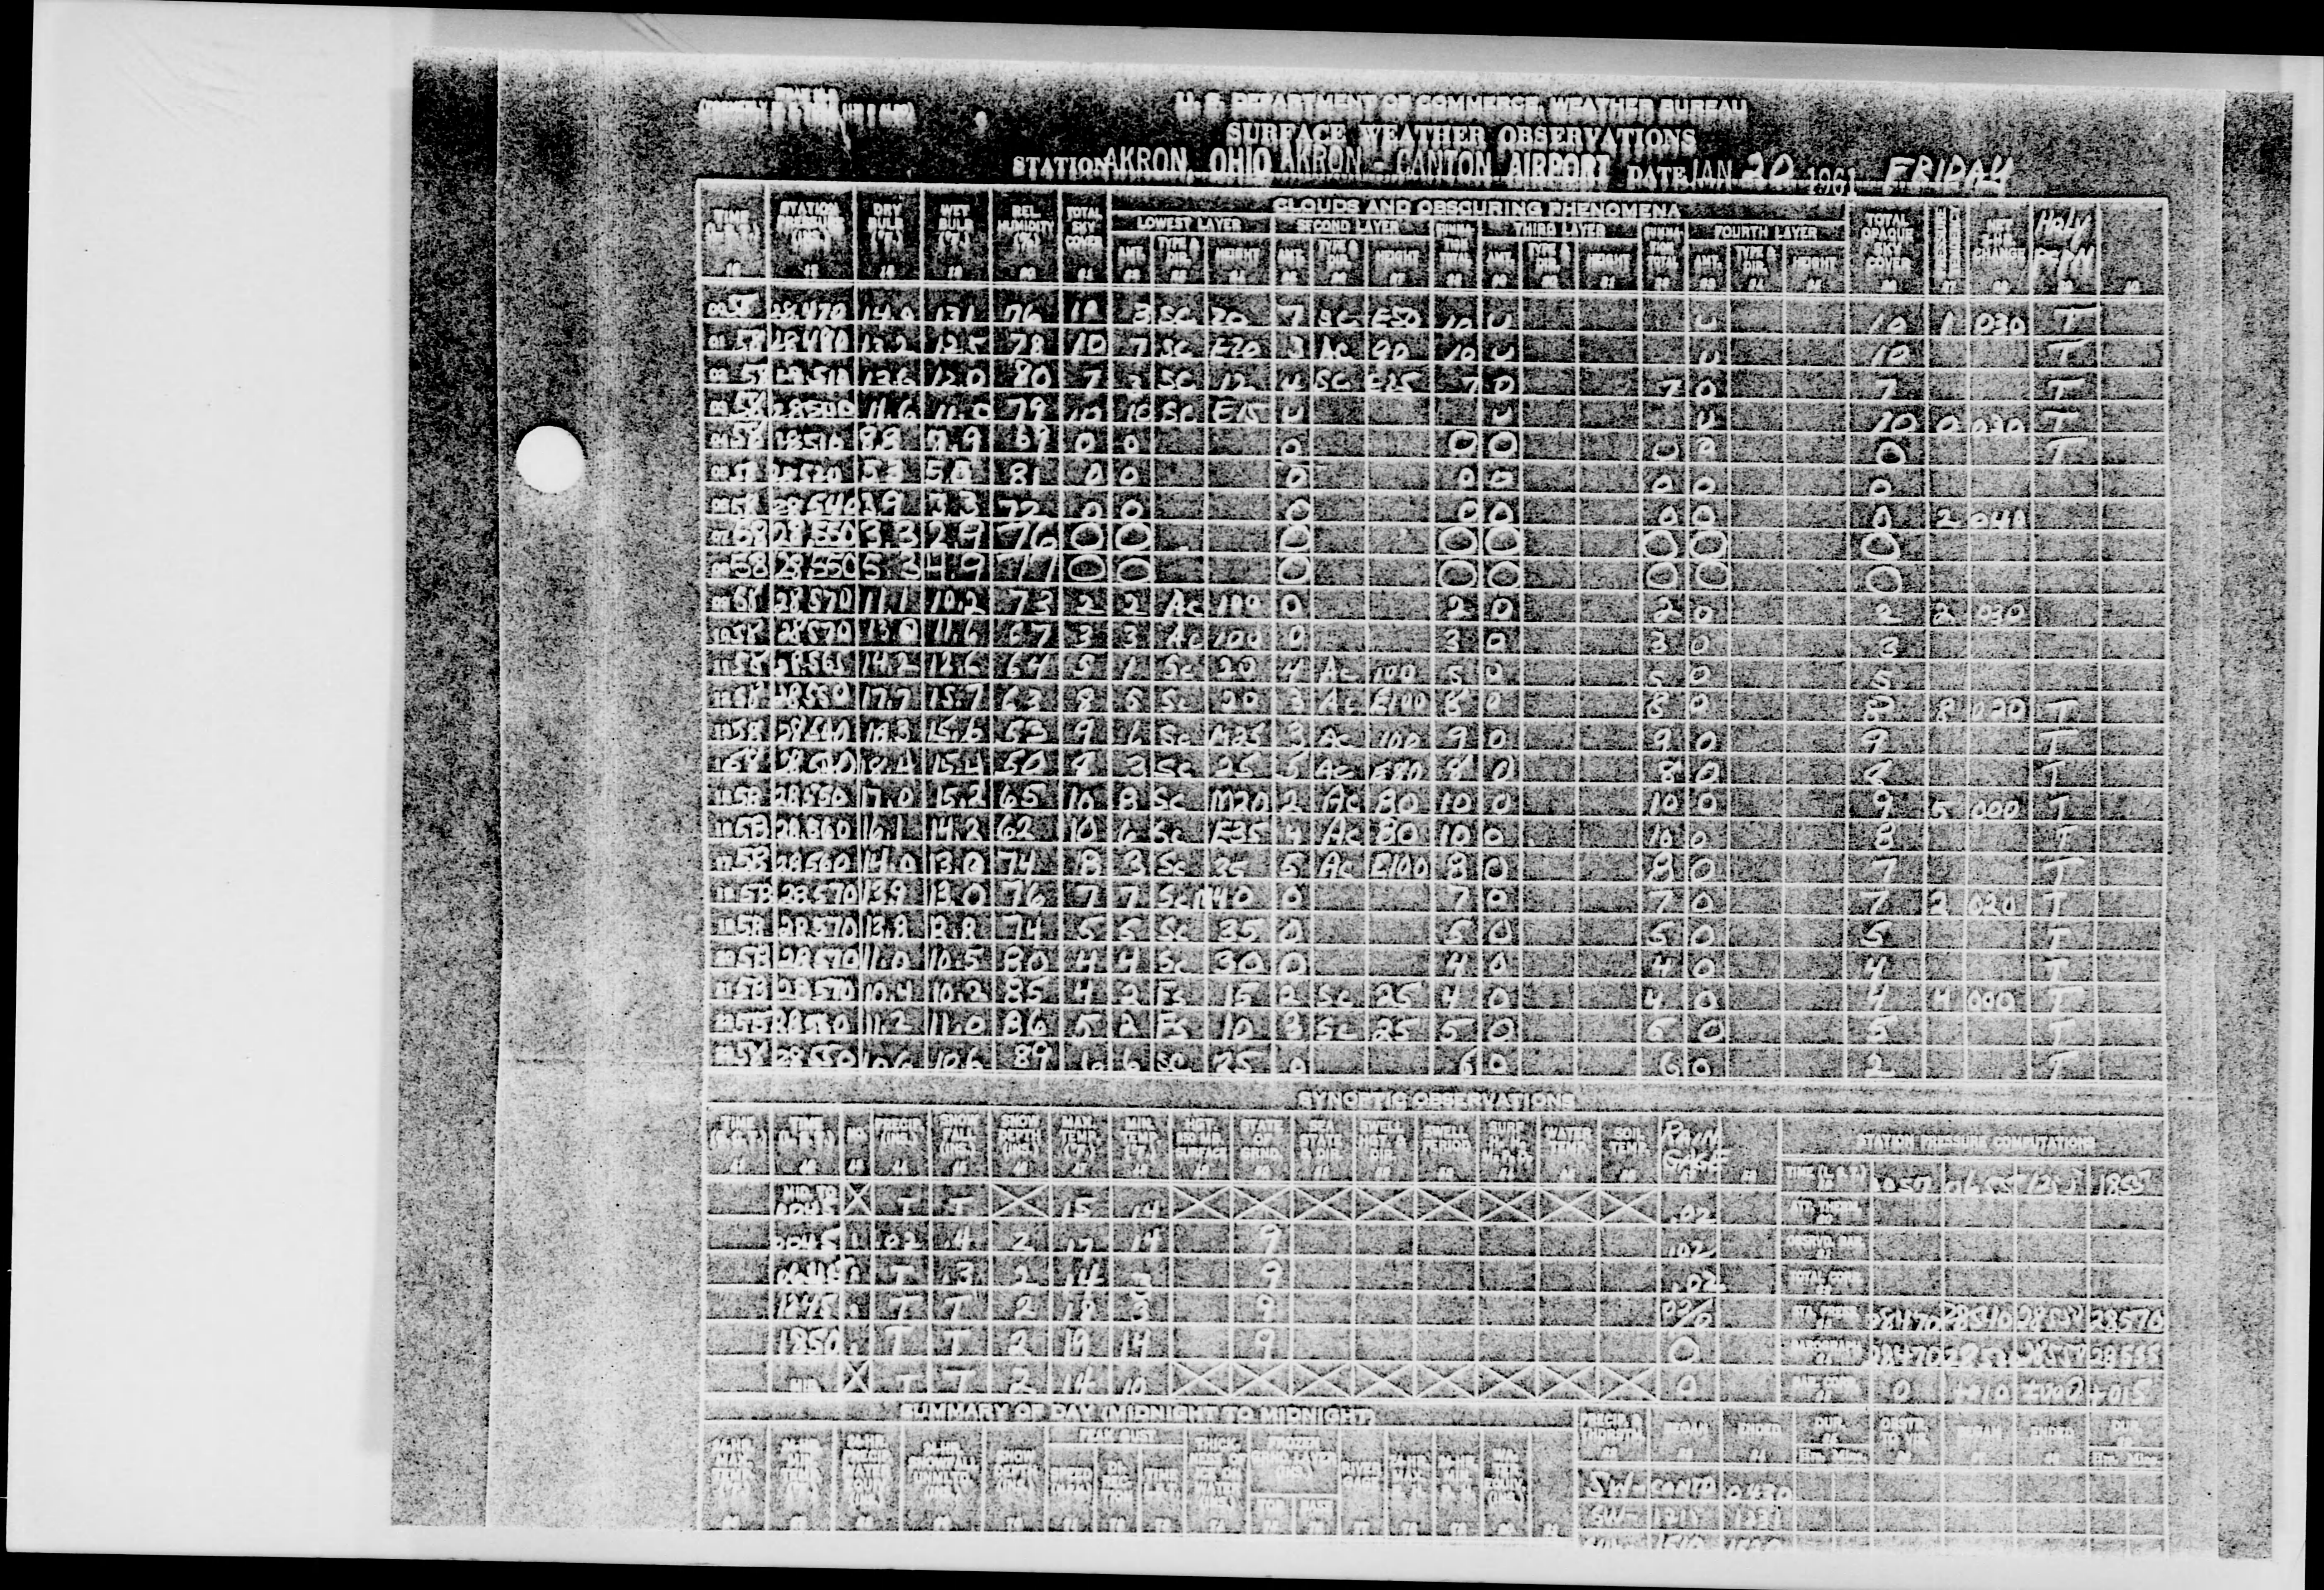 U. S. DEPARTMENT OF COMMERCE, WEATHER BUREAU
SURFACE WEATHER OBSERVATIONS
STATION AKRON, OHIO AKRON - CANTON AIRPORT DATE JAN 20 1961 FRIDAY
CLOUDS AND OBSCURING PHENOMENA
LOWEST LAYER SECOND LAYER THIRD LAYER FOURTH LAYER
TIME (L.S.T.) STATION PRESSURE (INS.) DRY BULB (°F.) WET BULB (°F.) REL. HUMIDITY (%) TOTAL SKY COVER AMT. TYPE & DIR. HEIGHT AMT. TYPE & DIR. HEIGHT SUMMATION TOTAL AMT. TYPE & DIR. HEIGHT SUMMATION TOTAL AMT. TYPE & DIR. HEIGHT TOTAL OPAQUE SKY COVER PRESSURE TENDENCY NET 3-HR. CHANGE HRLY PCPN
0058 28.470 14.0 13.1 76 10 3 SC 20 7 SC E50 10 U U 10 1 030 T
0158 28.480 13.2 12.5 78 10 7 SC E20 3 AC 90 10 U U 10 T
58 28.510 12.0 80 7 3 SC 12 4 SC E25 7 0 7 0 7 T
58 28.500 11.6 11.0 79 10 10 SC E15 U U U 10 0 030 T
58 28.510 8.8 7.9 69 0 0 0 0 0 0 0 0 T
58 28.520 5.3 5.0 81 0 0 0 0 0 0 0 0
58 28.540 3.9 3.3 72 0 0 0 0 0 0 0 0 2 040
0758 28.550 3.3 2.9 76 0 0 0 0 0 0 0 0
58 28.550 5.3 4.9 77 0 0 0 0 0 0 0 0
58 28.570 11.1 10.2 73 2 2 Ac 100 0 2 0 2 0 2 2 030
1058 28.570 13.0 11.6 67 3 3 Ac 100 0 3 0 3 0 3
1158 28.565 14.2 12.6 64 5 1 Sc 20 4 Ac 100 5 0 5 0 5
1258 28.550 17.7 15.7 63 8 5 Sc 20 3 Ac E100 8 0 8 0 8 8 020 T
1358 28.540 15.6 53 9 6 Sc M25 3 Ac 100 9 0 9 0 9 T
58 15.4 50 8 3 Sc 25 5 Ac E80 8 0 8 0 8 T
1558 28.550 17.0 15.2 65 10 8 Sc M20 2 Ac 80 10 0 10 0 9 5 000 T
1658 28.560 16.1 14.2 62 10 6 Sc E35 4 Ac 80 10 0 10 0 8 T
1758 28.560 14.0 13.0 74 8 3 Sc 35 5 Ac E100 8 0 8 0 7 T
1858 28.570 13.9 13.0 76 7 7 Sc M40 0 7 0 7 0 7 2 020 T
1958 28.570 13.8 12.8 74 5 5 Sc 35 0 5 0 5 0 5 T
2058 28.570 11.0 10.5 80 4 4 Sc 30 0 4 0 4 0 4 T
2158 28.570 10.4 10.2 85 4 2 Fs 15 2 Sc 25 4 0 4 0 4 4 000 T
11.2 11.0 86 5 2 Fs 10 3 Sc 25 5 0 5 0 5 T
58 28.550 10.6 10.6 89 6 6 SC 25 0 6 0 6 0 2 T
SYNOPTIC OBSERVATIONS
TIME (G.C.T.) TIME (L.S.T.) NO. PRECIP. (INS.) SNOW FALL (INS.) SNOW DEPTH (INS.) MAX. TEMP. (°F.) MIN. TEMP. (°F.) STATE OF GRND. SEA STATE & DIR. SWELL HGT. & DIR. SWELL PERIOD WATER TEMP. SOIL TEMP. RAIN GAGE STATION PRESSURE COMPUTATIONS
TIME (L.S.T.) 1855
MID. TO 0045 T T 15 14 .02 ATT. THERM.
0045 1 .02 .4 2 17 14 9 .02 OBSVD. BAR.
0645 T .3 2 14 3 9 .02 TOTAL CORR.
1245 T T 2 18 3 9 STA. PRESS. 28.470 28.540 28.570
1850 T T 2 19 14 9 0 BAROGRAPH 28.470
MID. T T 2 14 10 0 BAR. CORR. 0 +.010 +.015
SUMMARY OF DAY (MIDNIGHT TO MIDNIGHT)
24-HR. MAX. TEMP. (°F.) 24-HR. MIN. TEMP. (°F.) 24-HR. PRECIP. WATER EQUIV. (INS.) 24-HR. SNOWFALL UNMLTD. (INS.) SNOW DEPTH (INS.) PEAK GUST SPEED DIRECTION TIME L.S.T. THICKNESS OF ICE ON WATER (INS.) FROZEN GRND. LAYER (INS.) TOP BASE RIVER GAGE
PRECIP. & THDRSTM. BEGAN ENDED DUR. OBSTR. TO VIS. BEGAN ENDED DUR.
Hrs. Mins. Hrs. Mins.
SW- CONTD 0430
SW- 1217 1231